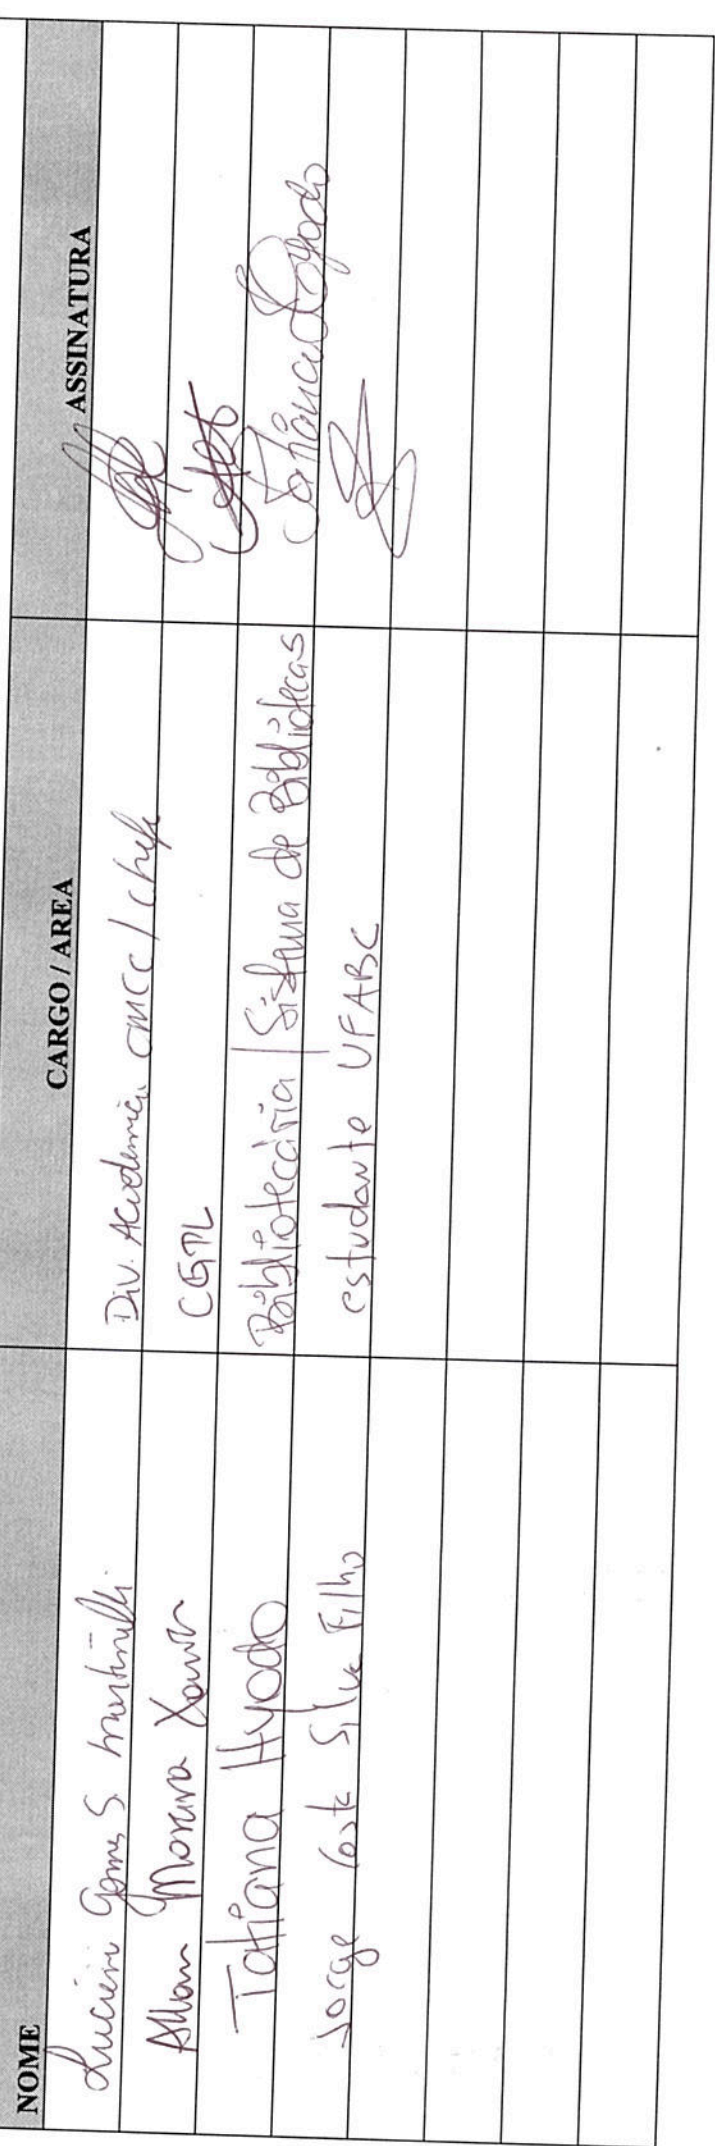 NOME CARGO / AREA ASSINATURA
Lucieni Gomes S. Martinelli Div. Acadêmica CMCC / Chefe
Allan Moreira Xavier CGTL
Tatiana Hyodo Bibliotecária / Sistema de Bibliotecas Tatiana Hyodo
Jorge Costa Silva Filho estudante UFABC